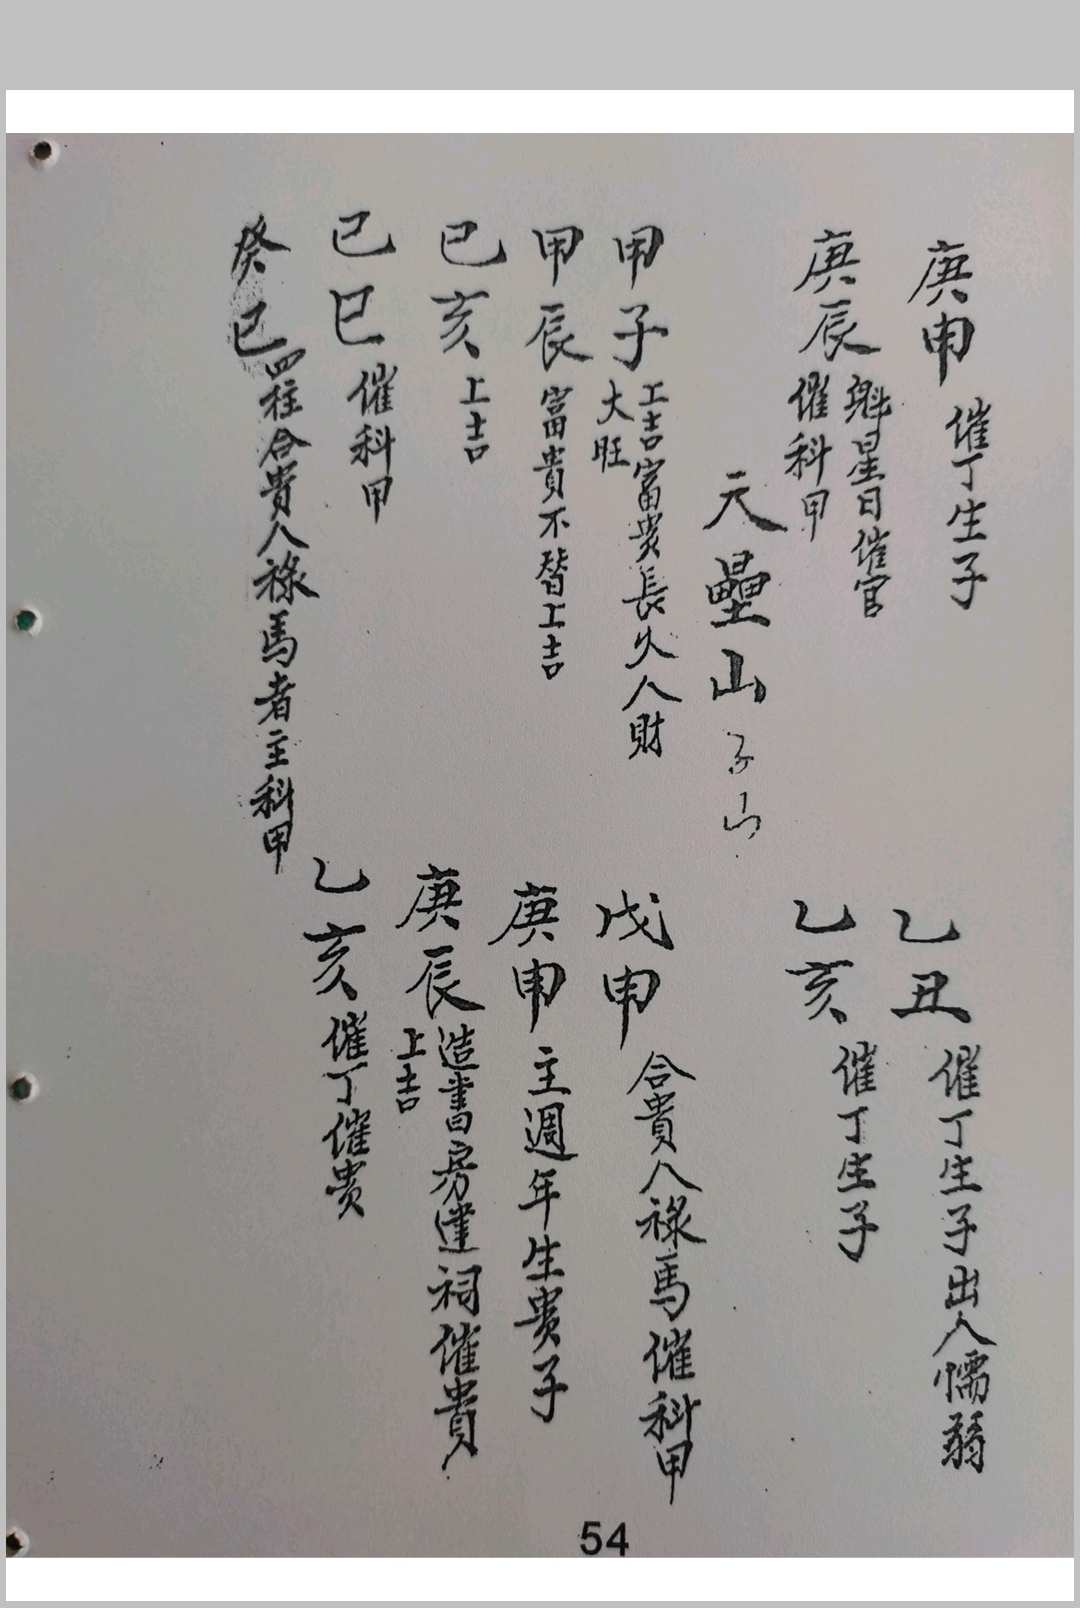 庚申 催丁生子
乙丑 催丁生子出人懦弱
庚辰 魁星日催官
催科甲
乙亥 催丁生子
天壘山 子山
甲子 上吉富貴長久人財
大旺
戊申 合貴人祿馬催科甲
甲辰 富貴不替上吉
庚申 主週年生貴子
己亥 上吉
庚辰 造書房建祠催貴
上吉
己巳 催科甲
乙亥 催丁催貴
癸巳 四柱合貴人祿馬者主科甲
54